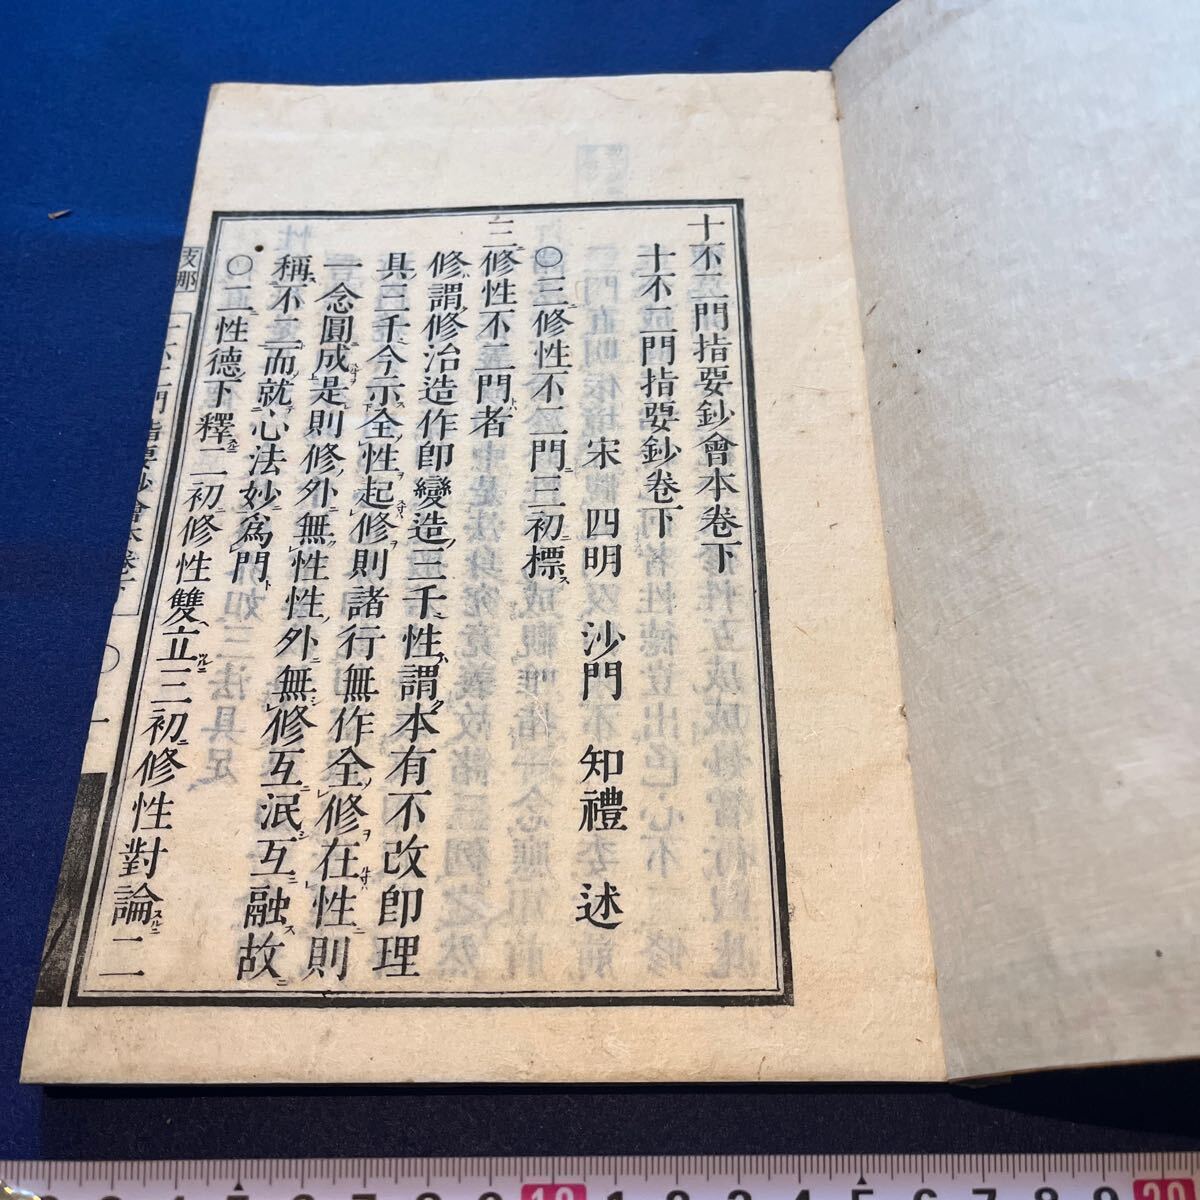 十不二門指要鈔會本卷下
十不二門指要鈔卷下
宋 四明 沙門 知禮 述
○三修性不二門三初標
三修性不二門者
修謂修治造作卽變造三千性謂本有不改卽理
具三千今示全性起修則諸行無作全修在性則
一念圓成是則修外無性性外無修互泯互融故
稱不二而就心法妙爲門
○二性德下釋二初修性雙立三初修性對論二
支那
十不二門指要鈔會本卷下
○
一